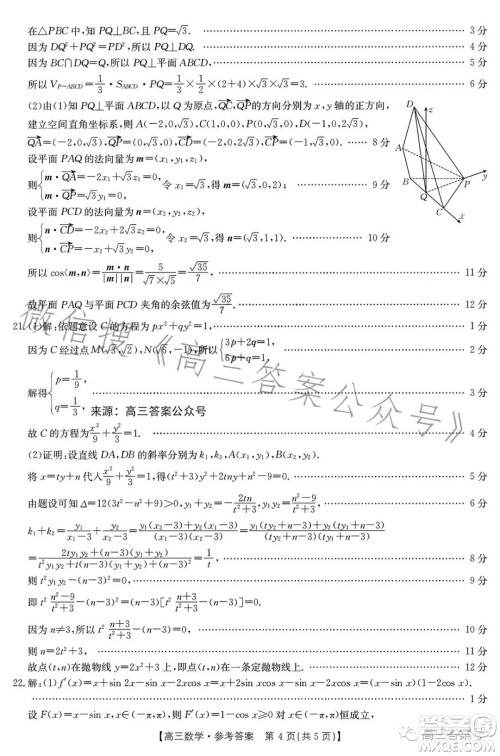 在△PBC中,知PQ⊥BC,且PQ=√3. 3分
因为DQ²+PQ²=PD²,所以PQ⊥DQ. 4分
因为BC∩DQ=Q,所以PQ⊥平面ABCD, 5分
所以V_{P-ABCD}=1/3·S_{ABCD}·PQ=1/3×1/2×(2+4)×√3×√3=3. 6分
(2)由(1)知PQ⊥平面ABCD,以Q为原点,QC,QP的方向分别为x,y轴的正方向,
建立空间直角坐标系,则A(-2,0,√3),C(1,0,0),P(0,√3,0),D(-1,0,2√3),
QA=(-2,0,√3),QP=(0,√3,0),CD=(-2,0,2√3),CP=(-1,√3,0). 8分
设平面PAQ的法向量为m=(x₁,y₁,z₁),
则{m·QA=-2x₁+√3z₁=0, m·QP=√3y₁=0, 令x₁=√3,得m=(√3,0,2); 9分
设平面PCD的法向量为n=(x₂,y₂,z₂),
则{n·CD=-2x₂+2√3z₂=0, n·CP=-x₂+√3y₂=0, 令x₂=√3,得n=(√3,1,1). 10分
所以cos⟨m,n⟩=m·n/|m||n|=5/(√7×√5)=√35/7, 11分
故平面PAQ与平面PCD夹角的余弦值为√35/7. 12分
21.(1)解:依题意设C的方程为px²+qy²=1, 1分
因为C经过点M(√3,√2),N(√6,-1),所以{3p+2q=1, 6p+q=1, 2分
解得{p=1/9, q=1/3,
来源:高三答案公众号
故C的方程为x²/9+y²/3=1. 4分
(2)证明:设直线DA,DB的斜率分别为k₁,k₂,A(x₁,y₁),B(x₂,y₂).
将x=ty+n代入x²/9+y²/3=1,得(t²+3)y²+2tny+n²-9=0. 5分
由题设可知Δ=12(3t²-n²+9)>0,y₁+y₂=-2tn/(t²+3),y₁y₂=(n²-9)/(t²+3), 6分
k₁+k₂=y₁/(x₁-3)+y₂/(x₂-3)=(y₁(x₂-3)+y₂(x₁-3))/((x₁-3)(x₂-3))=(y₁(ty₂+n-3)+y₂(ty₁+n-3))/((ty₁+n-3)(ty₂+n-3))
=(2ty₁y₂+(n-3)(y₁+y₂))/(t²y₁y₂+t(n-3)(y₁+y₂)+(n-3)²)=1/t, 8分
则t²y₁y₂-(n-3)²=0, 9分
即t²(n²-9)/(t²+3)-(n-3)²=(n-3)[t²(n+3)/(t²+3)-(n-3)]=0.
因为n≠3,所以t²(n+3)/(t²+3)-(n-3)=0, 10分
则n=2t²+3, 11分
故点(t,n)在抛物线y=2x²+3上,即点(t,n)在一条定抛物线上. 12分
22.解:(1)f′(x)=x+sin2x-sinx-2xcosx=x+2sinxcosx-sinx-2xcosx=(x-sinx)(1-2cosx).
1分
设F(x)=x-sinx,因为F′(x)=1-cosx≥0对x∈R恒成立,所以F(x)在R上单调递增.
【高三数学·参考答案 第4页(共5页)】
D
z
A
B
Q
P
y
C
x
微信搜《高三答案公众号》
高三答案